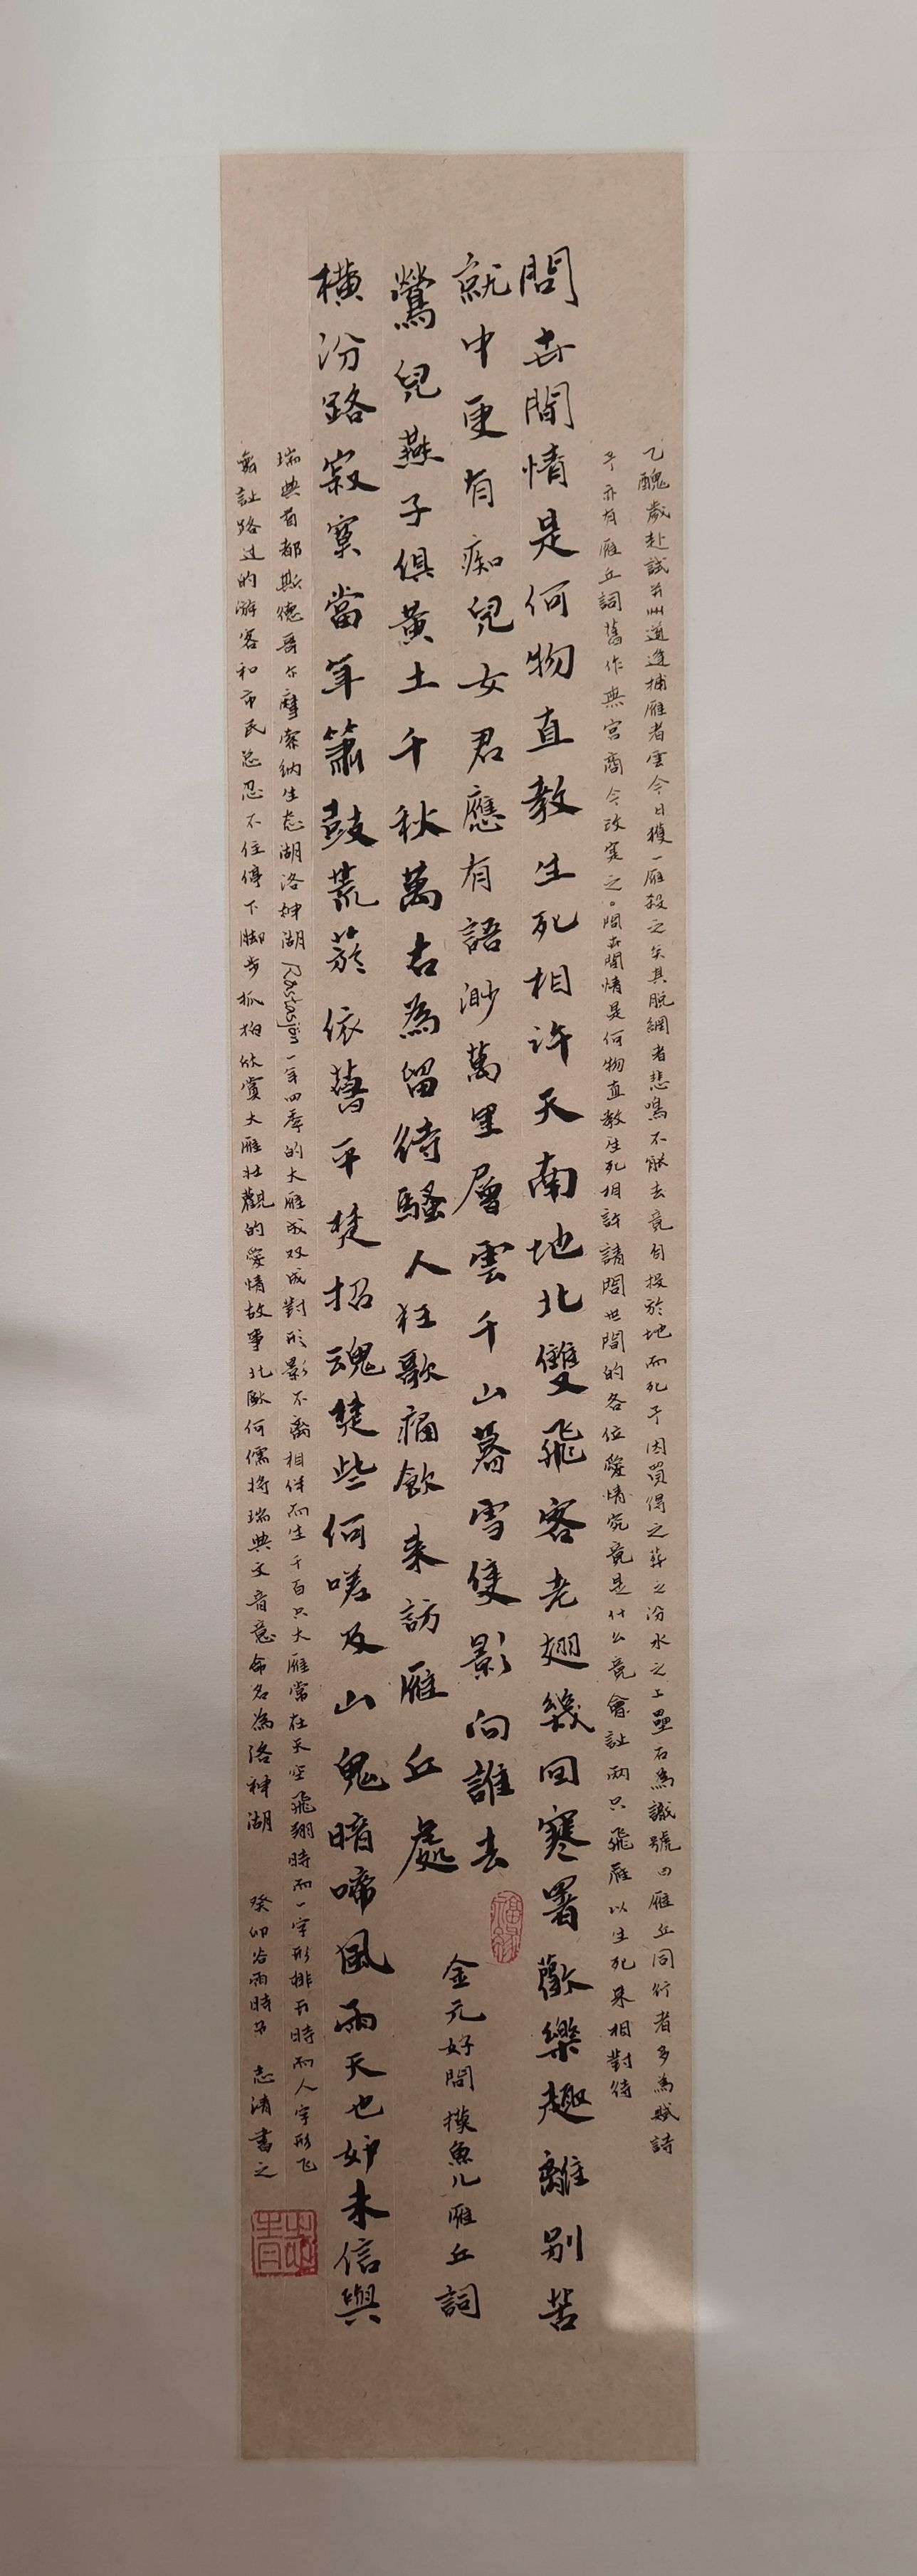 乙醜歲赴試并州道逢捕雁者雲今日獲一雁殺之矣其脫網者悲鳴不能去竟自投於地而死予因買得之葬之汾水之上壘石為識號曰雁丘同行者多為賦詩
予亦有雁丘詞舊作無宮商今改定之。問世間情是何物直教生死相許請問世間的各位愛情究竟是什么竟會讓兩只飛雁以生死來相對待
問世間情是何物直教生死相許天南地北雙飛客老翅幾回寒暑歡樂趣離別苦
就中更有痴兒女君應有語渺萬里層雲千山暮雪隻影向誰去
鶯兒燕子俱黃土千秋萬古為留待騷人狂歌痛飲來訪雁丘處
金元好問摸魚儿雁丘詞
橫汾路寂寞當年簫鼓荒菸依舊平楚招魂楚些何嗟及山鬼暗啼風雨天也妒未信與
瑞典首都斯德哥尔摩索納生态湖洛神湖 Råstasjön 一年四季的大雁成双成對形影不離相伴而生千百只大雁常在天空飛翔時而一字形排开時而人字形飞
舞让路过的游客和市民总忍不住停下脚步抓拍欣賞大雁壯觀的愛情故事北歐何儒將瑞典文音意命名為洛神湖 癸卯谷雨時节 志清書之